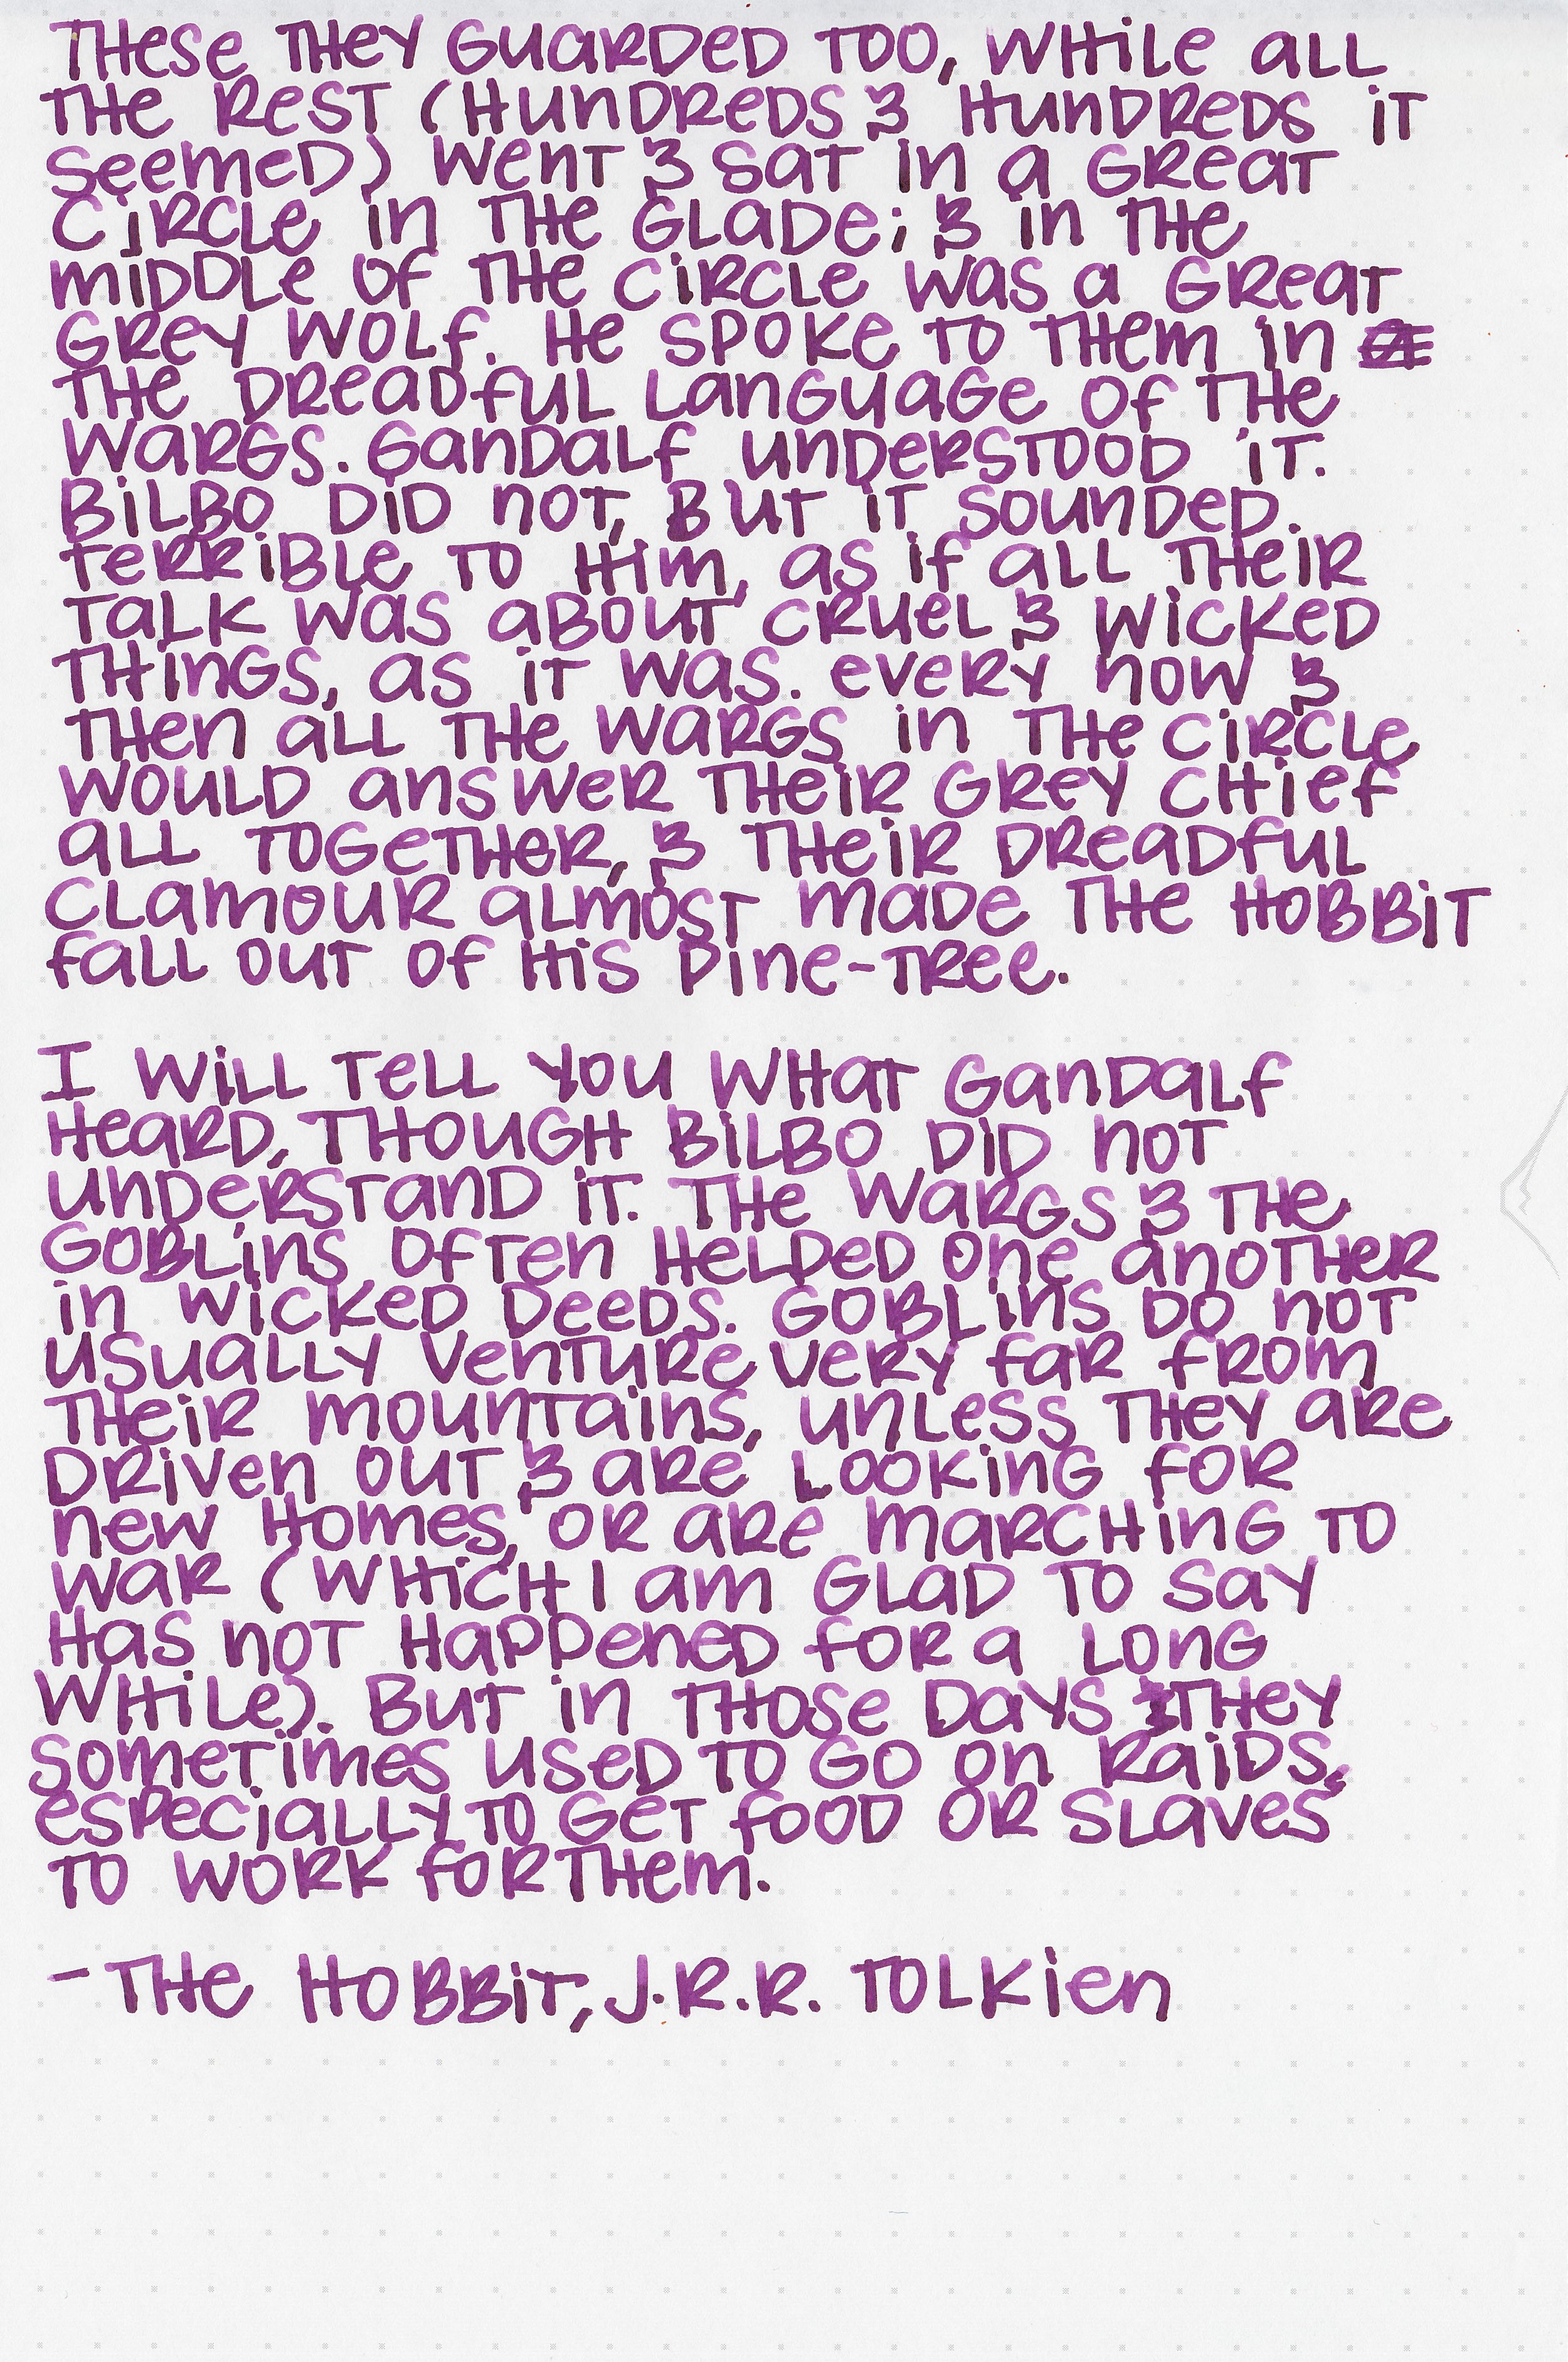 These they guarded too, while all
the rest (hundreds & hundreds it
seemed) went & sat in a great
circle in the glade; & in the
middle of the circle was a great
grey wolf. He spoke to them in
the dreadful language of the
Wargs. Gandalf understood it.
Bilbo did not, but it sounded
terrible to him, as if all their
talk was about cruel & wicked
things, as it was. Every now &
then all the Wargs in the circle
would answer their grey chief
all together, & their dreadful
clamour almost made the hobbit
fall out of his pine-tree.
I will tell you what Gandalf
heard, though Bilbo did not
understand it. The Wargs & the
goblins often helped one another
in wicked deeds. Goblins do not
usually venture very far from
their mountains, unless they are
driven out & are looking for
new homes, or are marching to
war (which I am glad to say
has not happened for a long
while). But in those days they
sometimes used to go on raids,
especially to get food or slaves
to work for them.
- The Hobbit, J.R.R. Tolkien